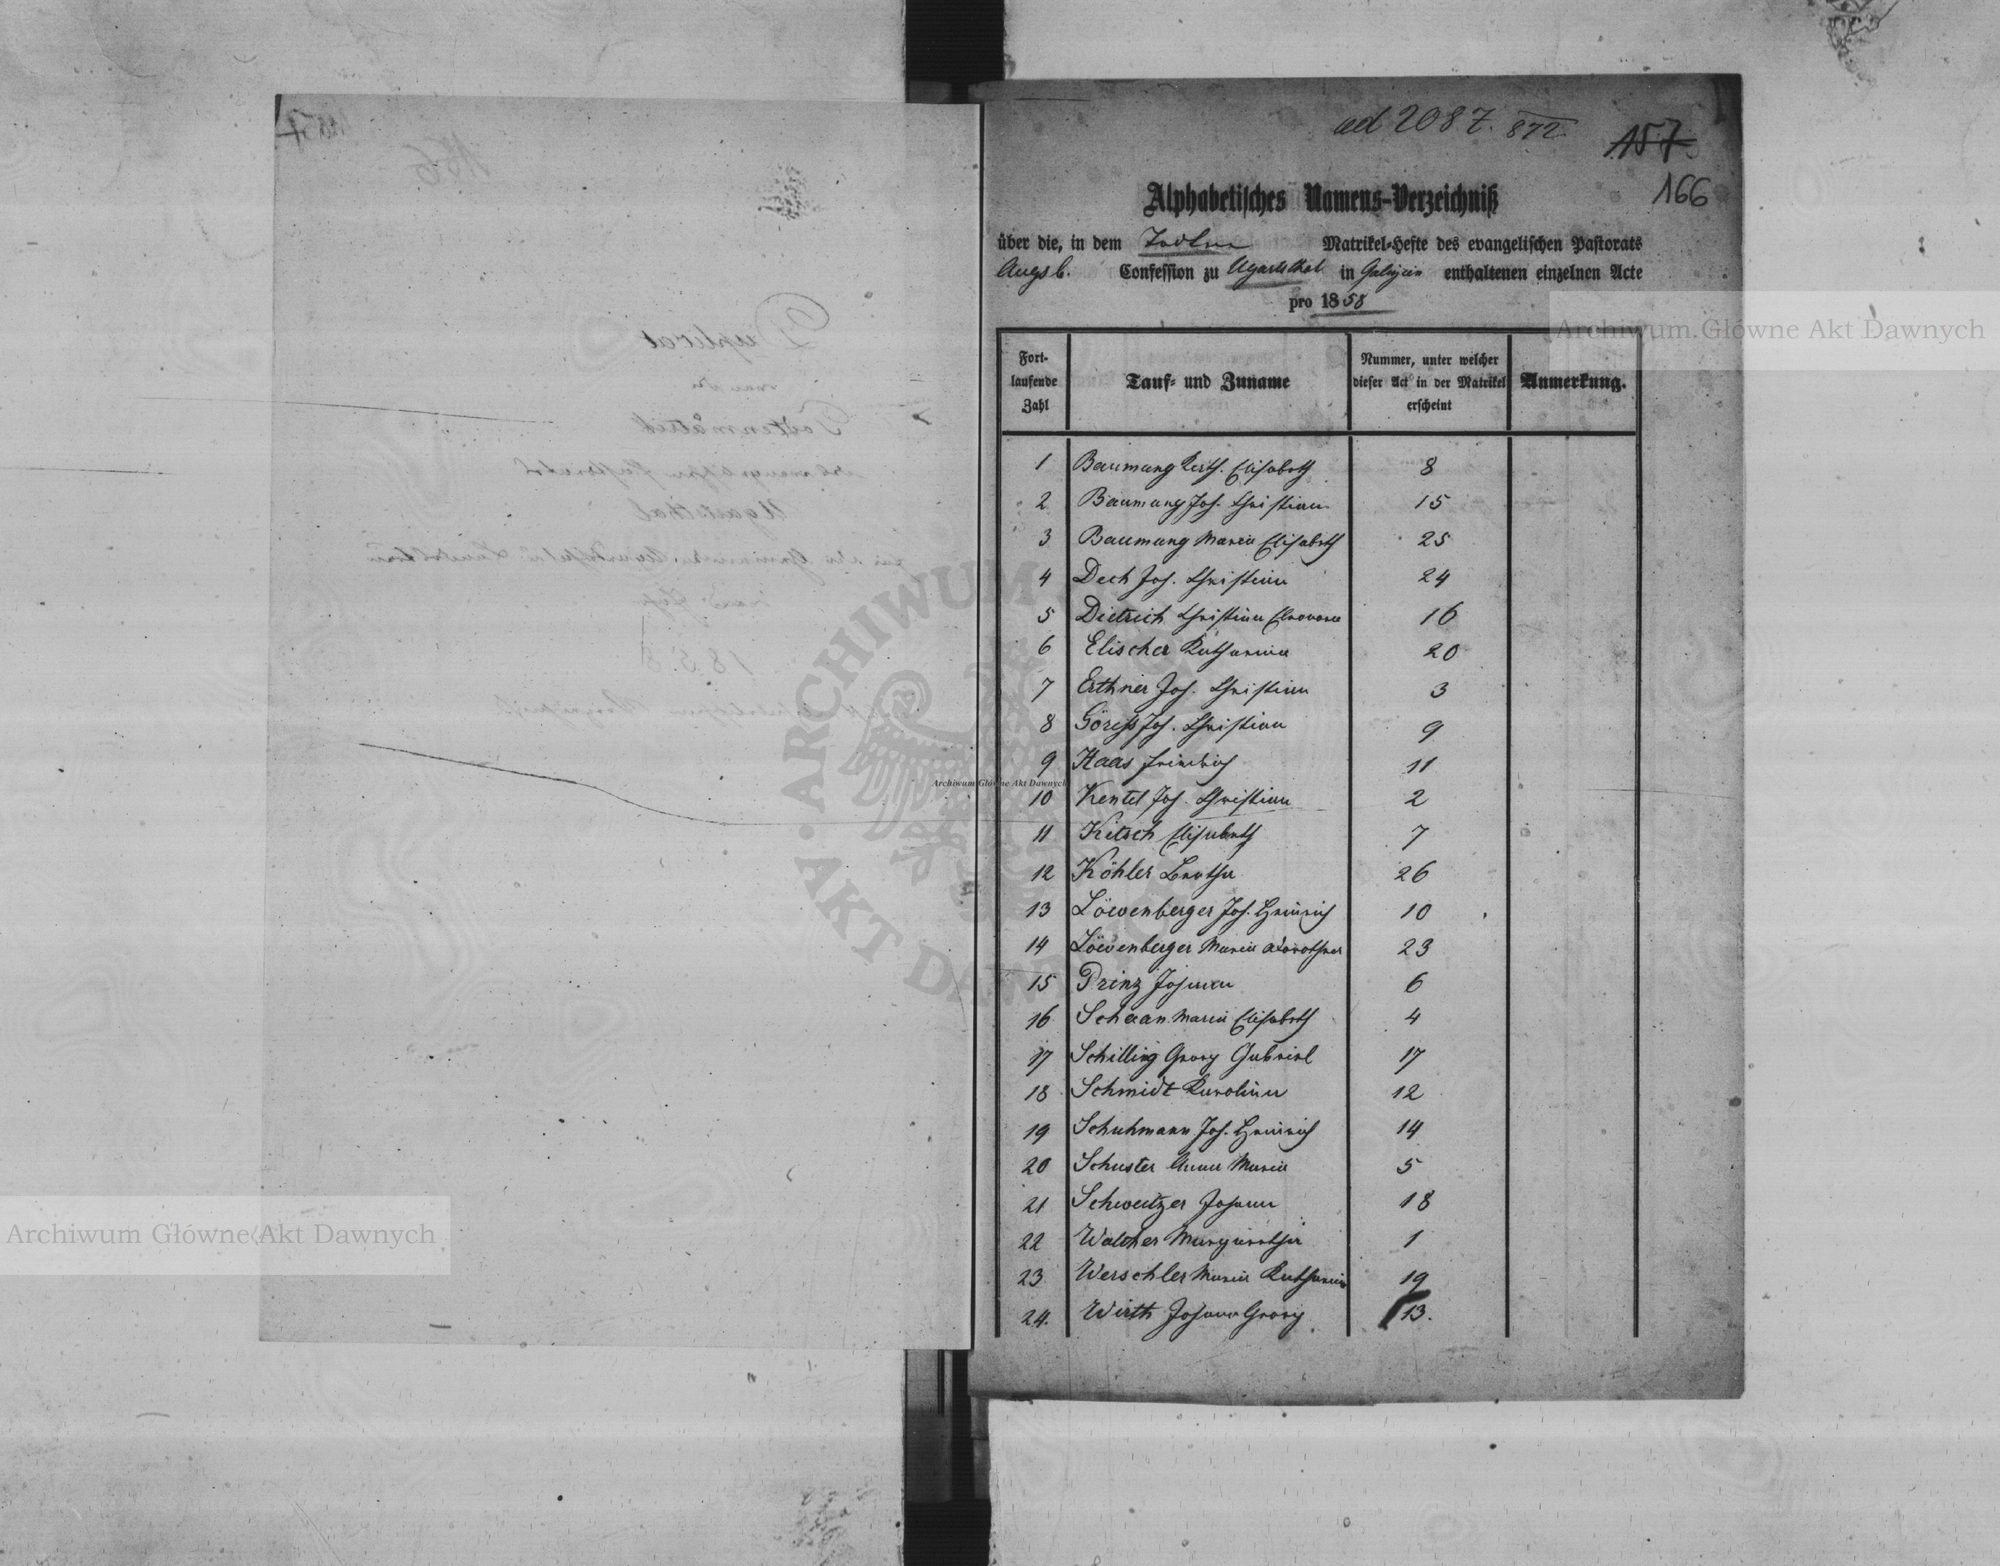 ad 2087. 872
157
166
Alphabetisches Namens-Verzeichniß
über die, in dem Todten Matrikel-Hefte des evangelischen Pastorats
Augsb. Confession zu Ugartsthal in Galizien enthaltenen einzelnen Acte
pro 1858
Fort-laufende Zahl Tauf- und Zuname Nummer, unter welcher dieser Act in der Matrikel erscheint Anmerkung.
1 Baumung Kath. Elisabeth 8
2 Baumung Joh. Christian 15
3 Baumung Maria Elisabeth 25
4 Dech Joh. Christian 24
5 Dietrich Christina Eleonora 16
6 Elischer Katharina 20
7 Erthner Joh. Christian 3
8 Göress Joh. Christian 9
9 Haas Friedrich 11
10 Kentel Joh. Christian 2
11 Kitsch Elisabeth 7
12 Köhler 26
13 Löwenberger Joh. Heinrich 10
14 Löwenberger Maria Dorothea 23
15 Prinz Johann 6
16 Schaan Maria Elisabeth 4
17 Schilling Georg Gabriel 17
18 Schmidt Karolina 12
19 Schuhmann Joh. Heinrich 14
20 Schuster Anna Maria 5
21 Schweitzer Johann 18
22 Walcher Margaretha 1
23 Werschler Maria Katharina 19
24. Wirth Johann Georg 13.
Duplicat
Ugartsthal
1858
Archiwum Główne Akt Dawnych
Archiwum Główne Akt Dawnych
Archiwum Główne Akt Dawnych
ARCHIWUM
AKT DAWNYCH